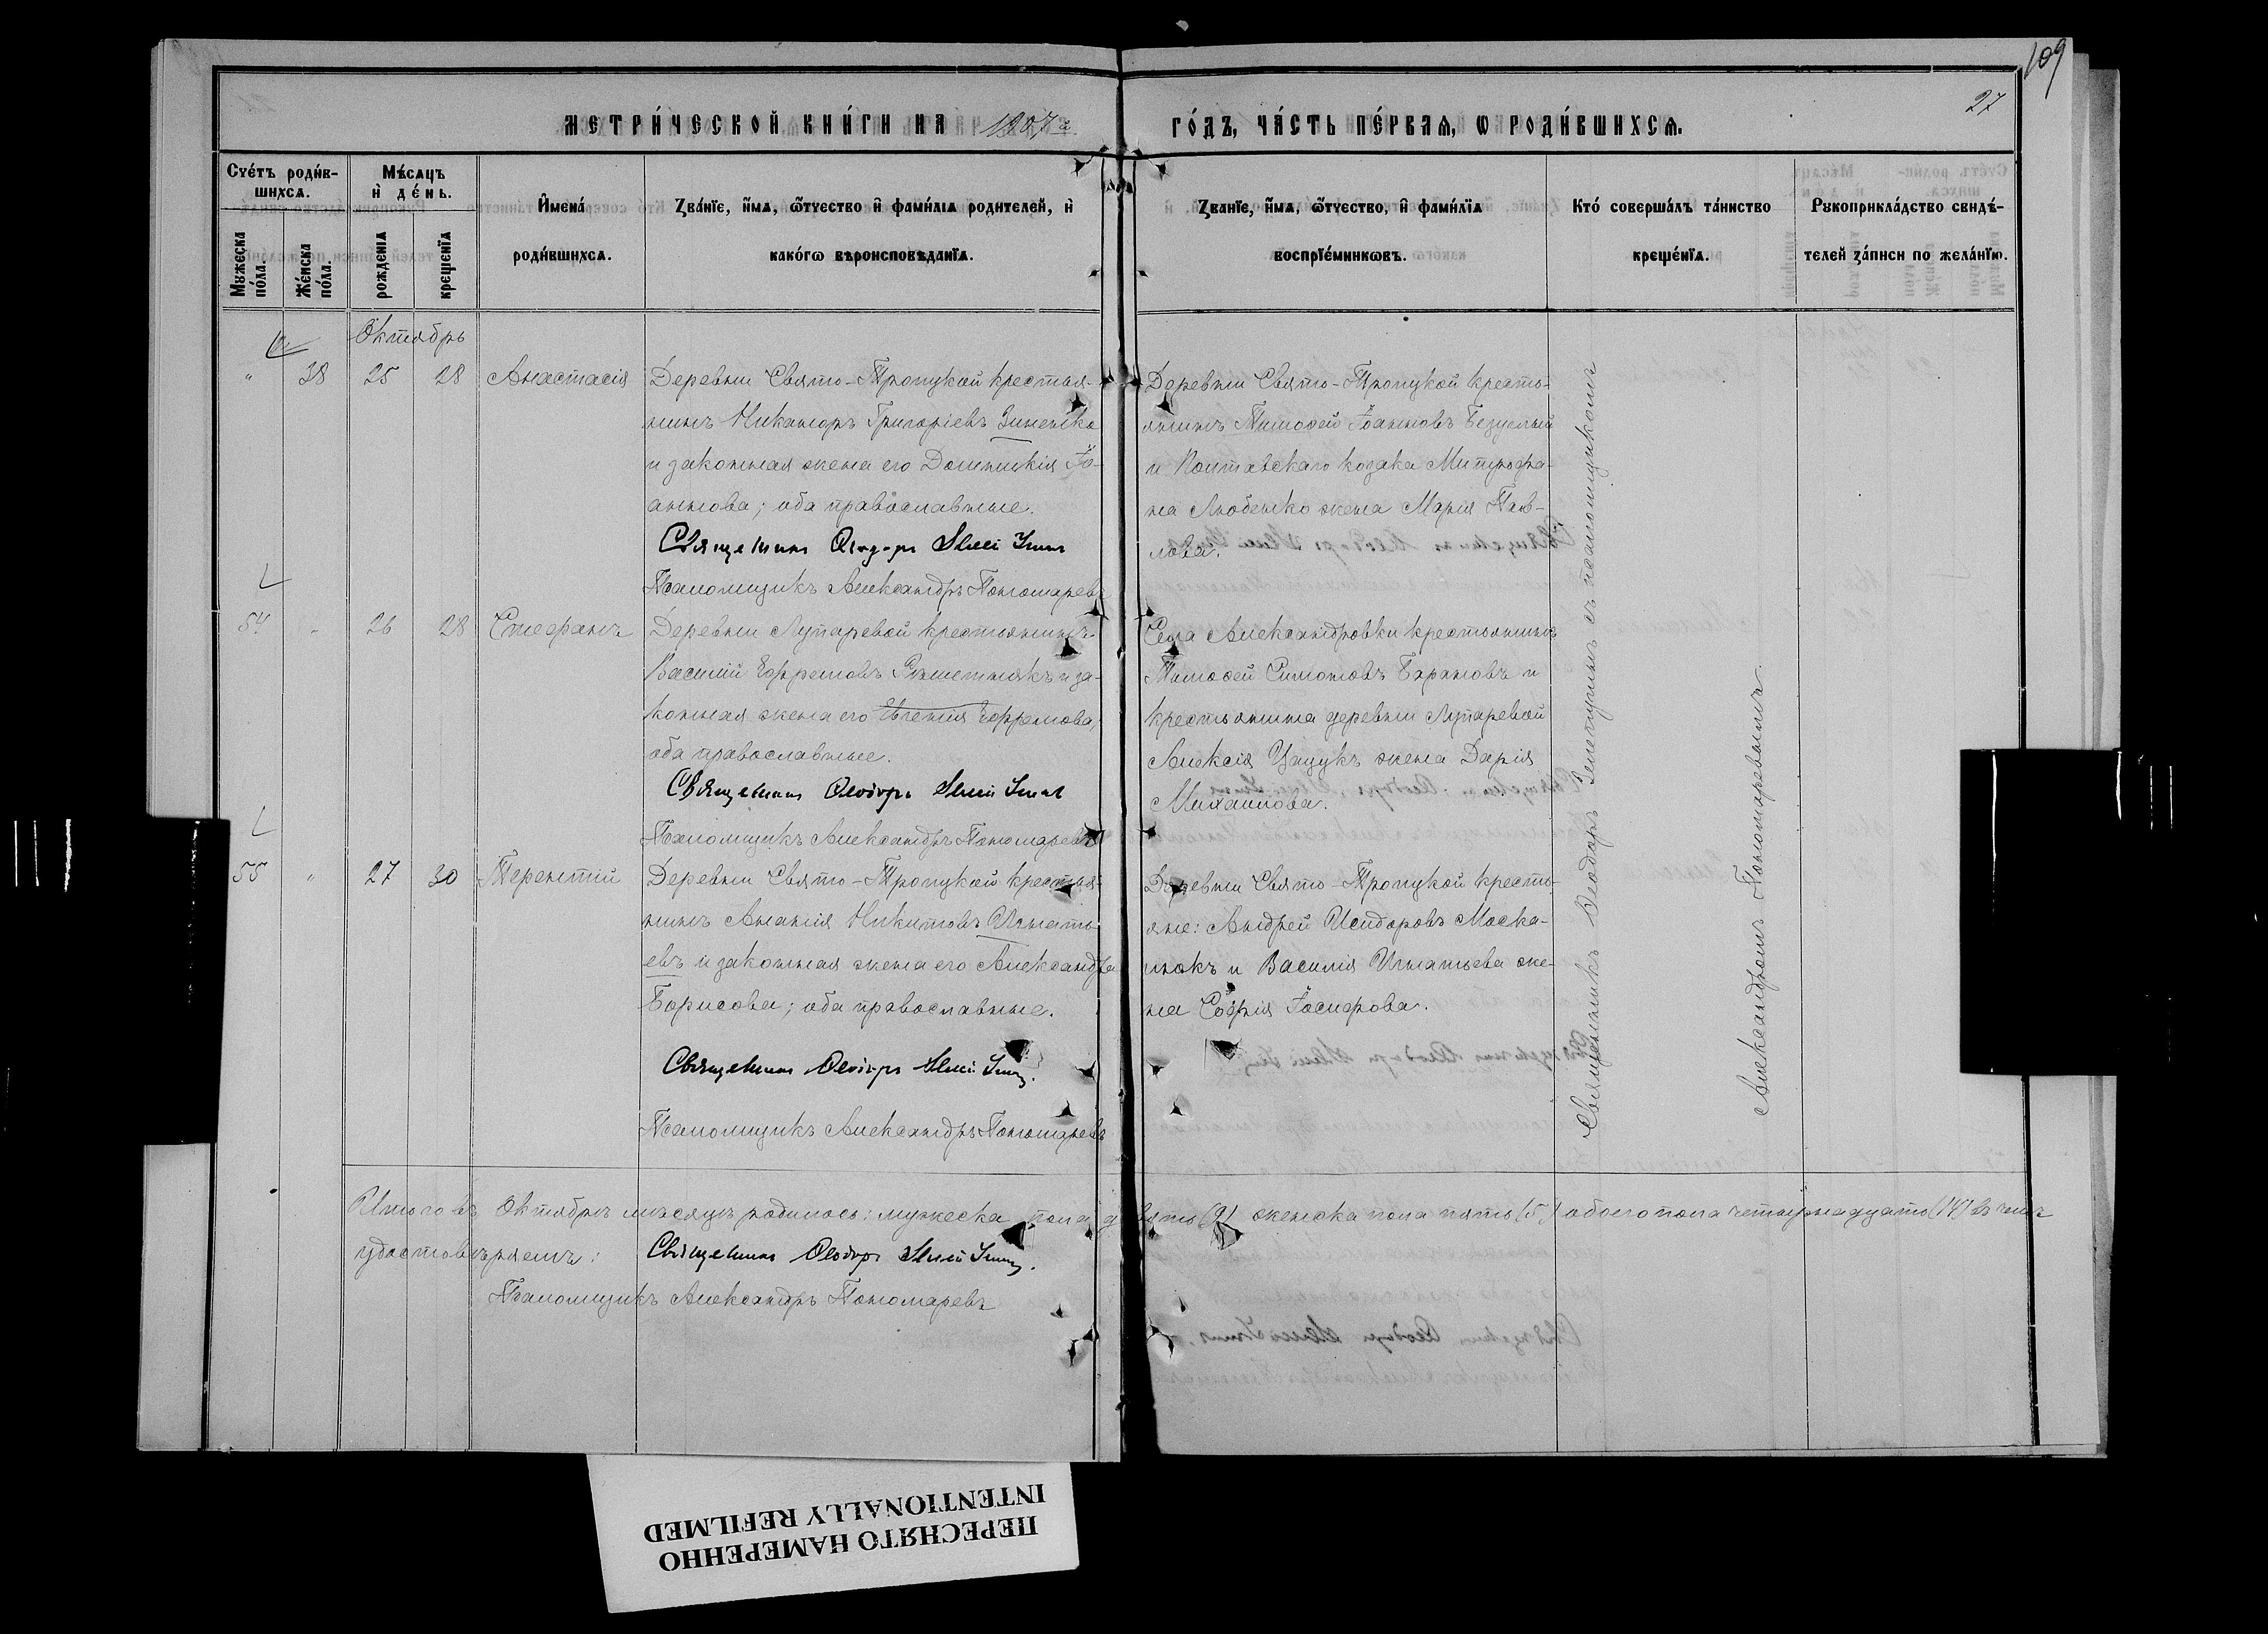 109
27
МЕТРИ́ЧЕСКОЙ КНИ́ГИ НА 1907 й
ГО́ДЪ, ЧА́СТЬ ПЕ́РВАЯ, Ѡ РОДИ́ВШИХСЯ.
Сче́тъ роди́в-
шихсѧ.
Мѣ́сяцъ
и де́нь.
Мꙋжеска
по́ла.
Же́нска
по́ла.
рожденїѧ
крещенїѧ
Имена́
роди́вшихсѧ.
Зва́нїе, и́мѧ, ѻ҆́тчество и фами́лїѧ родителей, и
како́гѡ вѣроисповѣданїѧ.
Званїе, и́мѧ, ѻ҆́тчество, и фами́лїѧ
воспрїе́мникѡвъ.
Кто́ соверша́лъ та́инство
креще́нїѧ.
Рꙋкоприкла́дство свидѣ́-
телей за́писи по жела́нїю.
Октябрь
" 38 25 28 Анастасія
Деревни Свято-Троицкой крестья-
нинъ Никаноръ Григоріевъ Зиненко
и законная жена его Домникія Іо-
аннова; оба православные.
Священникъ Ѳеодоръ
Псаломщикъ Александръ Пономаревъ
Деревни Свято-Троицкой кресть-
янинъ Тимоѳей Іоанновъ Безуглый
и Полтавскаго козака Митрофа-
на Любенко жена Марія Пав-
лова.
54 " 26 28 Стефанъ
Деревни Лупаревой крестьянинъ
Василій Ефремовъ Рѣшетнякъ и за-
конная жена его Евгенія Ефремова,
оба православные.
Священникъ Ѳеодоръ
Псаломщикъ Александръ Пономаревъ
Села Александровки крестьянинъ
Тимоѳей Симоновъ Барановъ и
крестьянина деревни Лупаревой
Алексія Цацукъ жена Дарія
Михаилова.
55 " 27 30 Терентій
Деревни Свято-Троицкой крестья-
нинъ Ананія Никитовъ Игнать-
евъ и законная жена его Александра
Борисова; оба православные.
Священникъ Ѳеодоръ
Псаломщикъ Александръ Пономаревъ
Деревни Свято-Троицкой кресть-
яне: Андрей Исидоровъ Моска-
люкъ и Василія Игнатьева же-
на Софія Іосифова.
Священникъ Ѳеодоръ съ псаломщикомъ
Александромъ Пономаревымъ.
Итого въ Октябрѣ мѣсяцѣ родилось: мужеска пола девять (9) женска пола пять (5) обоего пола четырнадцать (14) въ чемъ
удостовѣряемъ: Священникъ Ѳеодоръ
Псаломщикъ Александръ Пономаревъ
ПЕРЕСНЯТО НАМЕРЕННО
INTENTIONALLY REFILMED